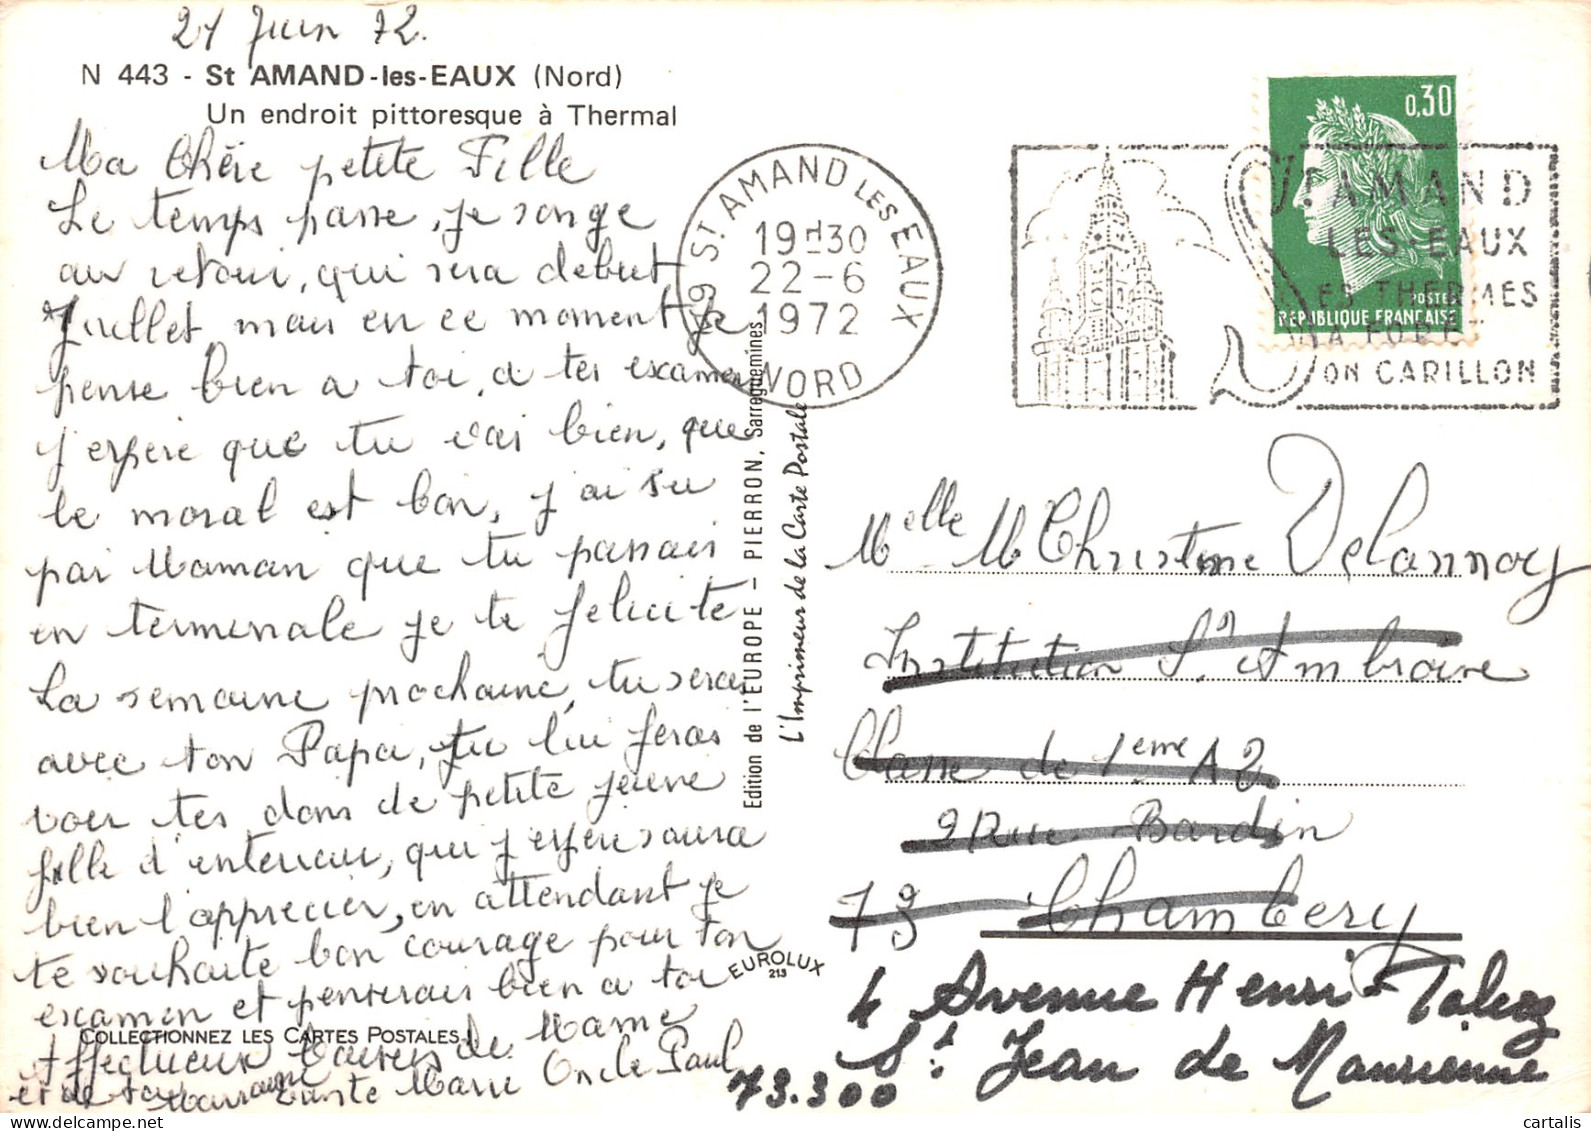 21 Juin 72.
N 443 - St AMAND-les-EAUX (Nord)
Un endroit pittoresque à Thermal
Ma Chère petite Fille
Le temps passe, je songe
au retour, qui sera debut
Juillet, mais en ce moment je
pense bien a toi, a tes examens
j'espère que tu vas bien, que
le moral est bon, j'ai su
par Maman que tu passais
en terminale je te félicite
La semaine prochaine, tu seras
avec ton Papa, tu lui feras
voir tes dons de petite jeune
fille d'interieur, qui j'espère saura
bien l'apprecier, en attendant je
te souhaite bon courage pour ton
examen et penserais bien a toi
Affectueux Baisers de Mamé
et de ta Marraine Tante Marie Oncle Paul
COLLECTIONNEZ LES CARTES POSTALES!
Edition de l'EUROPE - PIERRON, Sarreguemines
L'Imprimeur de la Carte Postale
EUROLUX
213
59 ST AMAND LES EAUX
19H30
22-6
1972
NORD
0,30
POSTES
REPUBLIQUE FRANCAISE
ST AMAND
LES-EAUX
SES THERMES
SA FORET
SON CARILLON
Melle M Christine Delannoy
Institution St Ambroise
Classe de 1ème A2
9 Rue Bardin
73 Chambery
4 Avenue Henri Falcoz
St Jean de Maurienne
73.300